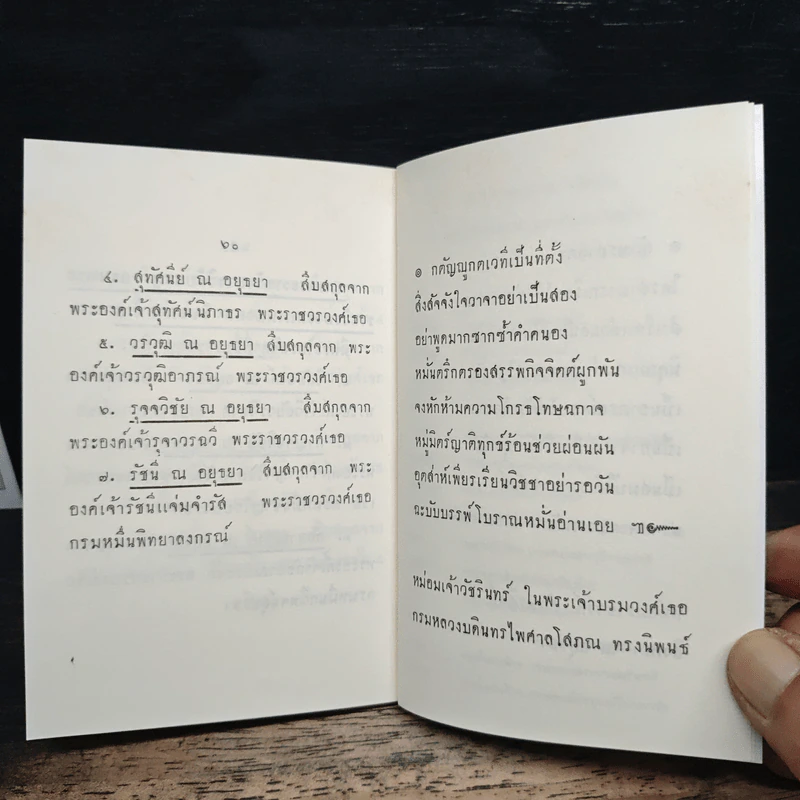 ๖๐
๔. สุทัศนีย์ ณ อยุธยา สืบสกุลจาก
พระองค์เจ้าสุทัศน์นิภาธร พระราชวรวงศ์เธอ
๕. วรวุฒิ ณ อยุธยา สืบสกุลจาก พระ
องค์เจ้าวรวุฒิอาภรณ์ พระราชวรวงศ์เธอ
๖. รุจจวิชัย ณ อยุธยา สืบสกุลจาก
พระองค์เจ้ารุจาวรฉวี พระราชวรวงศ์เธอ
๗. รัชนี ณ อยุธยา สืบสกุลจาก พระ
องค์เจ้ารัชนีแจ่มจำรัส พระราชวรวงศ์เธอ
กรมหมื่นพิทยาลงกรณ์
๏ กตัญญูกตเวทีเป็นที่ตั้ง
สิ่งสัจจังใจวาจาอย่าเป็นสอง
อย่าพูดมากซากซ้ำคำคนอง
หมั่นตริกตรองสรรพกิจจิตต์ผูกพัน
จงหักห้ามความโกรธโทษฉกาจ
หมู่มิตร์ญาติทุกข์ร้อนช่วยผ่อนผัน
อุตส่าห์เพียรเรียนวิชชาอย่ารอวัน
ฉะบับบรรพ์โบราณหมั่นอ่านเอย ฯ๛
หม่อมเจ้าวัชรินทร์ ในพระเจ้าบรมวงศ์เธอ
กรมหลวงบดินทรไพศาลโสภณ ทรงนิพนธ์